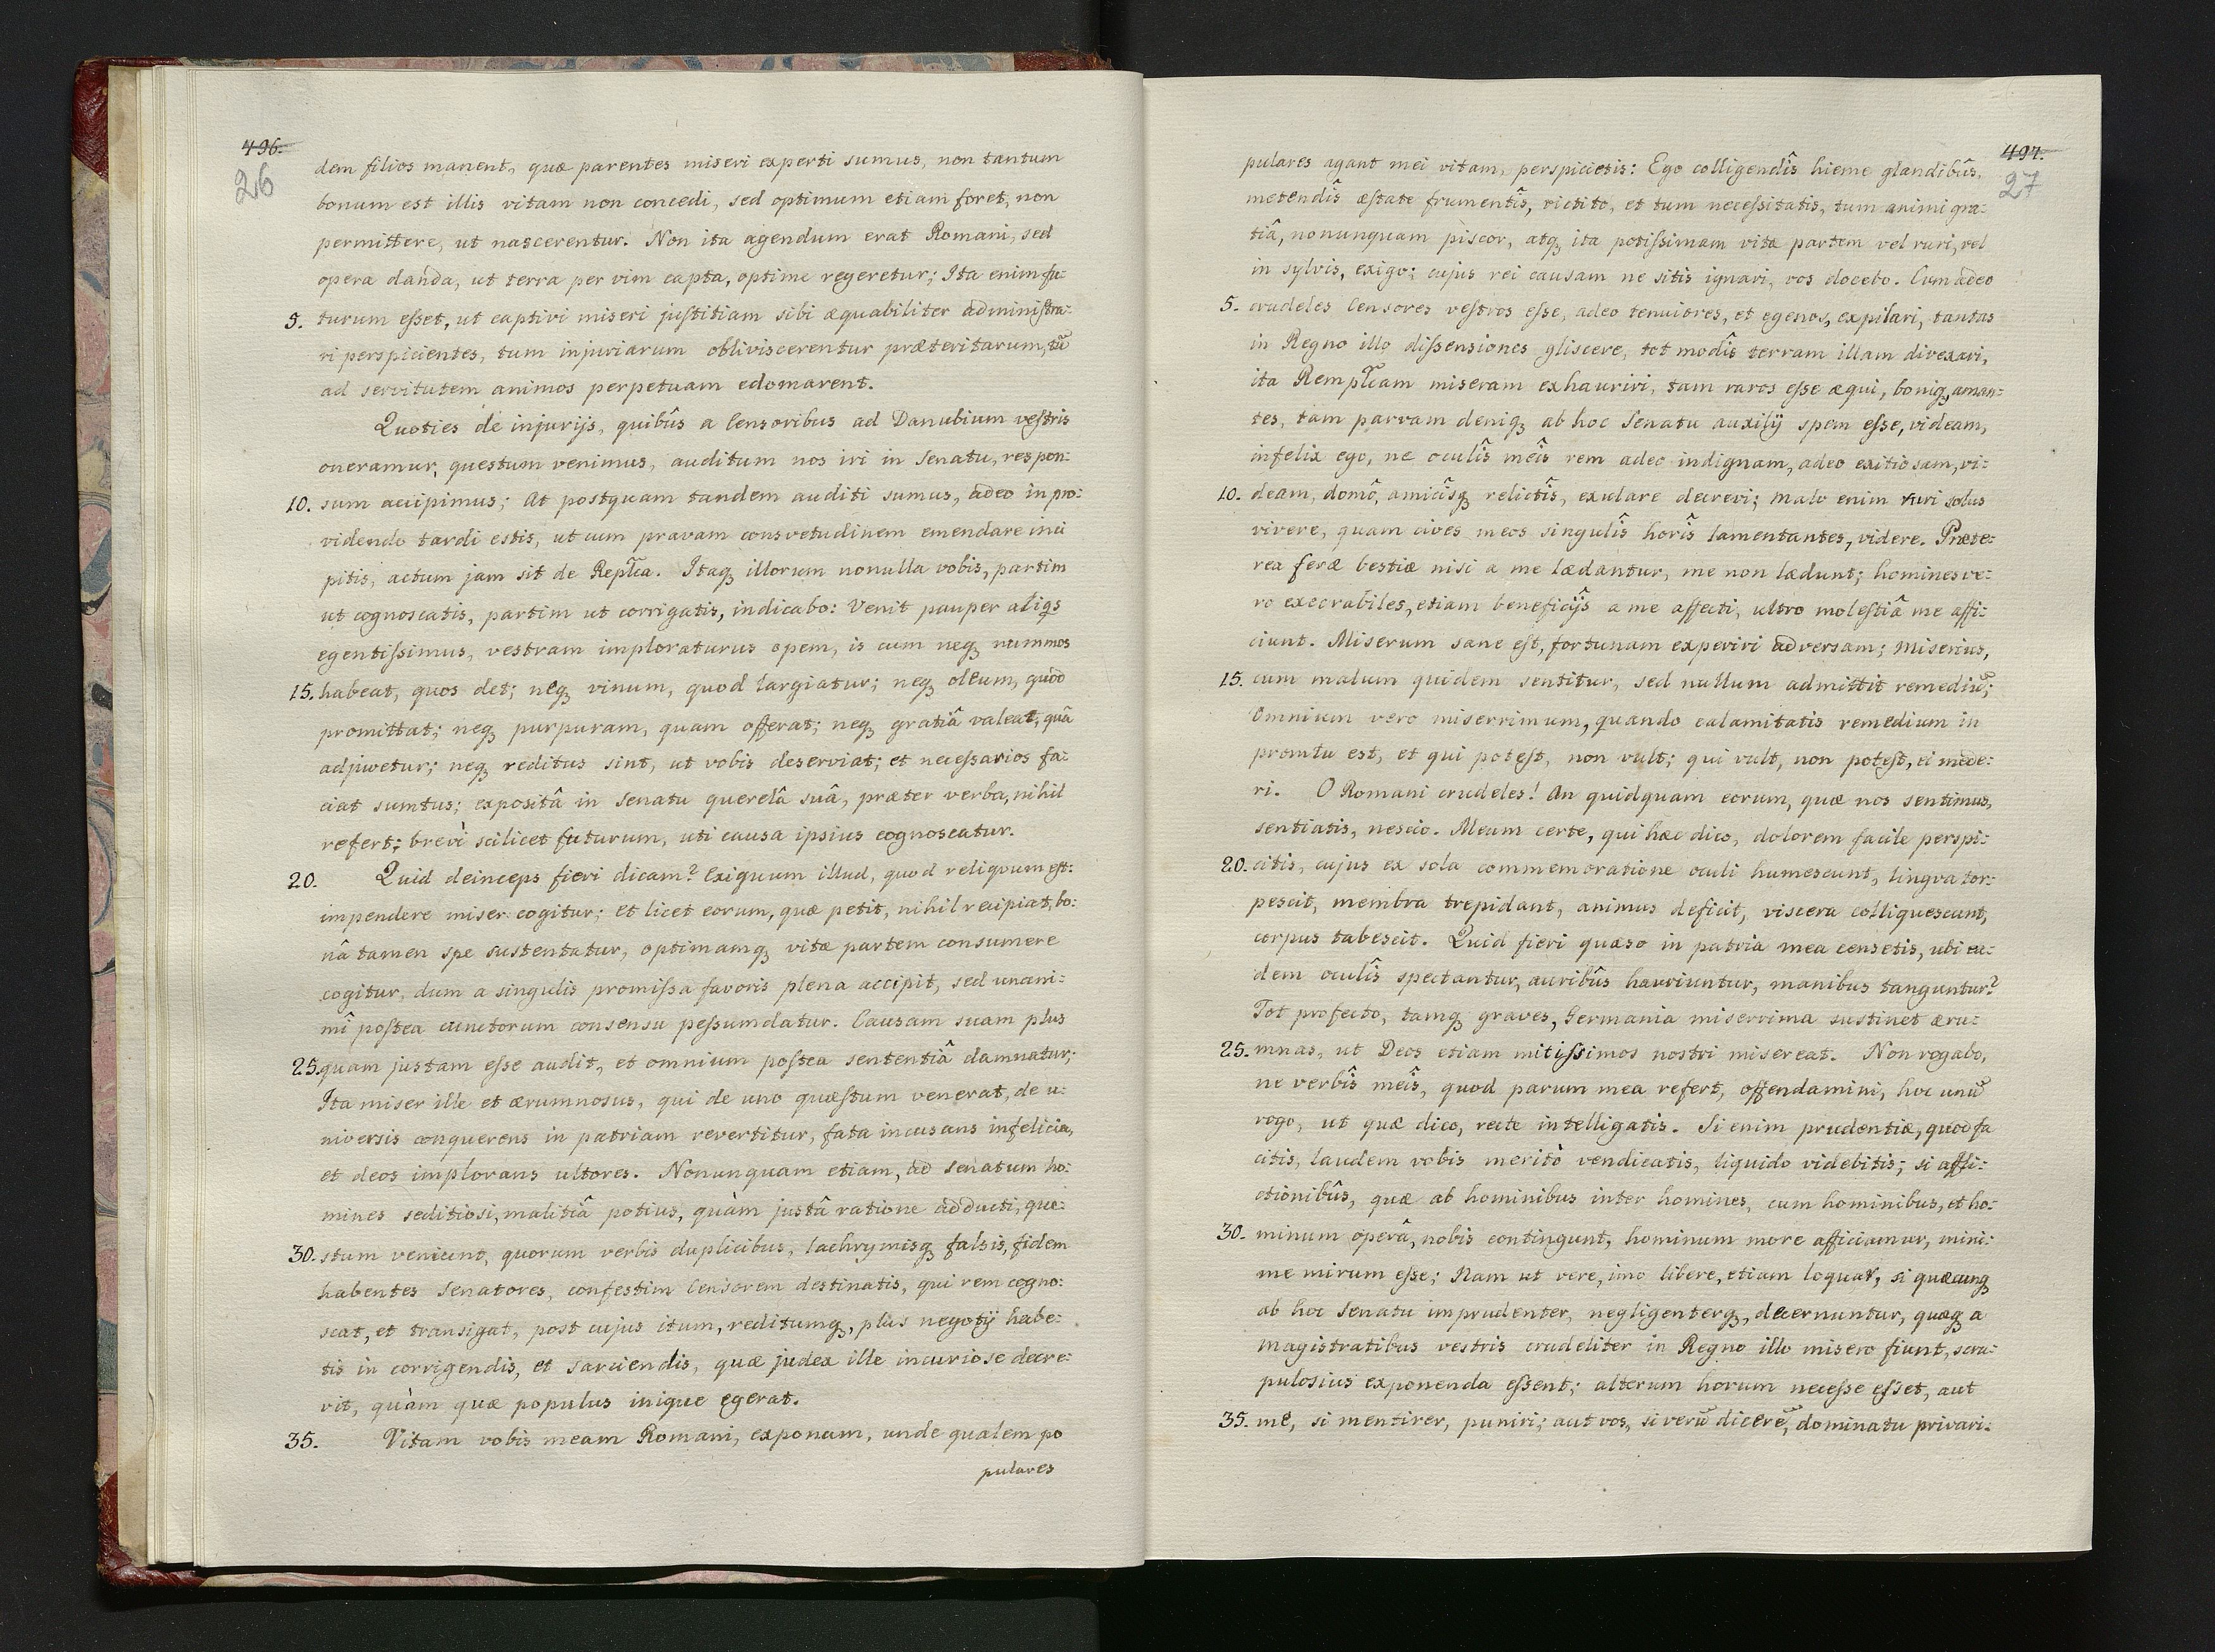 496.
26
dem filios manent, quæ parentes miseri experti sumus, non tantum
bonum est illis vitam non concedi, sed optimum etiam foret, non
permittere, ut nascerentur. Non ita agendum erat Romani, sed
opera danda, ut terra per vim capta, optime regeretur; Ita enim fu:
5. turum eſset, ut captivi miseri juſtitiam sibi æquabiliter adminiſtra:
ri perspicientes, tum injuriarum obliviscerentur præteritarum, tū
ad servitutem animos perpetuam edomarent.
Quoties de injurijs, quibûs a Censoribus ad Danubium veſtris
oneramur, questum venimus, auditum nos iri in Senatu, respon:
10. sum accipimus; At postquam tandem auditi sumus, adeo in pro:
videndo tardi estis, ut cum pravam consvetudinem emendare inci
pitis, actum jam sit de Repl̃ca. Itaq̨ illorum nonulla vobis, partim
ut cognoscatis, partim ut corrigatis, indicabo: Venit pauper aliq̨s
egentiſsimus, vestram imploraturus opem, is cum neq̨ nummos
15. habeat, quos det; neq̨ vinum, quod largiatur; neq̨ oleum, quod
promittat; neq̨ purpuram, quam offerat; neq̨ gratiâ valeat, quâ
adjuvetur; neq̨ reditus sint, ut vobis deserviat; et neceſsarios fa:
ciat sumtus; expositâ in Senatu querelâ suâ, præter verba, nihil
refert; brevì scilicet futurum, uti causa ipsius cognoscatur.
20. Quid deinceps fieri dicam? Exiguum illud, quod reliqvum eſt:
impendere miser cogitur; et licet eorum, quæ petit, nihil recipiat, bo:
nâ tamen spe sustentatur, optimamq̨ vitæ partem consumere
cogitur, dum a singulis promiſsa favoris plena accipit, sed unani:
mî poſtea cunctorum consensu peſsumdatur. Causam suam plus
25. quam justam eſse audit, et omnium poſtea sententiâ damnatur;
Ita miser ille et ærumnosus, qui de uno quæſtum venerat, de u:
niversis conquerens in patriam revertitur, fata incusans infelicia,
et deos implorans ultores. Nonunquam etiam, ad Senatum ho:
mines seditiosi, malitiâ potius, quàm juſtâ ratione adducti, que:
30. stum veniunt, quorum verbis duplicibus, lachrymisq̨ falsis, fidem
habentes Senatores, confestim Censorem destinatis, qui rem cogno:
scat, et transigat, post cujus itum, reditumq̨, plus negotÿ habe:
tis in corrigendis, et sarciendis, quæ judex ille incuriose decre:
vit, quàm quæ populus inique egerat.
35. Vitam vobis meam Romani, exponam, unde qualem po
pulares
497.
27
pulares agant mei vitam, perspicietis: Ego colligendîs hieme glandibûs,
metendîs æſtate frumentîs, victito, et tum neceſsitatis, tum animi gra:
tiâ, nonunquam piscor, atq̨ ita potiſsimam vitæ partem vel ruri, vel
in sylvis, exigo; cujus rei causam ne sitis ignari, vos docebo. Cum adeo
5. crudeles Censores veſtros eſse, adeo tenuiores, et egenos, expilari, tantas
in Regno illo diſsensiones gliscere, tot modîs terram illam divexari,
ita Rempl̃cam miseram exhauriri, tam raros eſse æqui, boniq̨, aman:
tes, tam parvam deniq̨ ab hoc Senatu auxilÿ spem eſse, videam,
infelix ego, ne oculîs meîs rem adeo indignam, adeo exitiosam, vi:
10. deam, domô, amicîsq̨ relictîs, exulare decrevi; malo enim ruri solus
vivere, quam cives meos singulîs horîs lamentantes, videre. Præte:
rea feræ bestiæ nisi a me lædantur, me non lædunt; homines ve:
ro execrabiles, etiam beneficijs a me affecti, ultro moleſtiâ me affi:
ciunt. Miserum sane eſt, fortunam experiri adversam; Miserius,
15. cum malum quidem sentitur, sed nullum admittit remediū;
Omnium vero miserrimum, quando calamitatis remedium in
promtu est, et qui poteſt, non vult; qui vult, non poteſt, ei mede:
ri. O Romani crudeles! An quidquam eorum, quæ nos sentimus,
sentiatis, nescio. Meum certe, qui hæc dico, dolorem facile perspi:
20. citis, cujus ex sola commemoratione oculi humescunt, lingva tor:
pescit, membra trepidant, animus deficit, viscera colliquescunt,
corpus tabescit. Quid fieri quæso in patria mea censetis, ubi ea:
dem oculîs spectantur, auribûs hauriuntur, manibus tanguntur?
Tot profecto, tamq̨ graves, Germania miserrima sustinet æru:
25. mnas, ut Deos etiam mitiſsimos nostri misereat. Non rogabo,
ne verbîs meîs, quod parum mea refert, offendamini, hoc unū
rogo, ut quæ dico, recte intelligatis. Si enim prudentiæ, quod fa
citis, laudem vobis meritò vendicatis, liquido videbitis; si affli:
ctionibûs, quæ ab hominibus inter homines, cum hominibus, et ho:
30. minum operâ, nobis contingunt, hominum more afficiamur, mini:
me mirum eſse; Nam ut vere, imo libere, etiam loquar, si quæcunq̨
ab hoc Senatu imprudenter, negligenterq̨, decernuntur, quæq̨ a
magistratibus vestris crudeliter in Regno illo misero fiunt, scru:
pulosius exponenda eſsent; alterum horum neceſse eſset, aut
35. me, si mentirer, puniri; aut vos, si verū dicerē, dominatu privari: